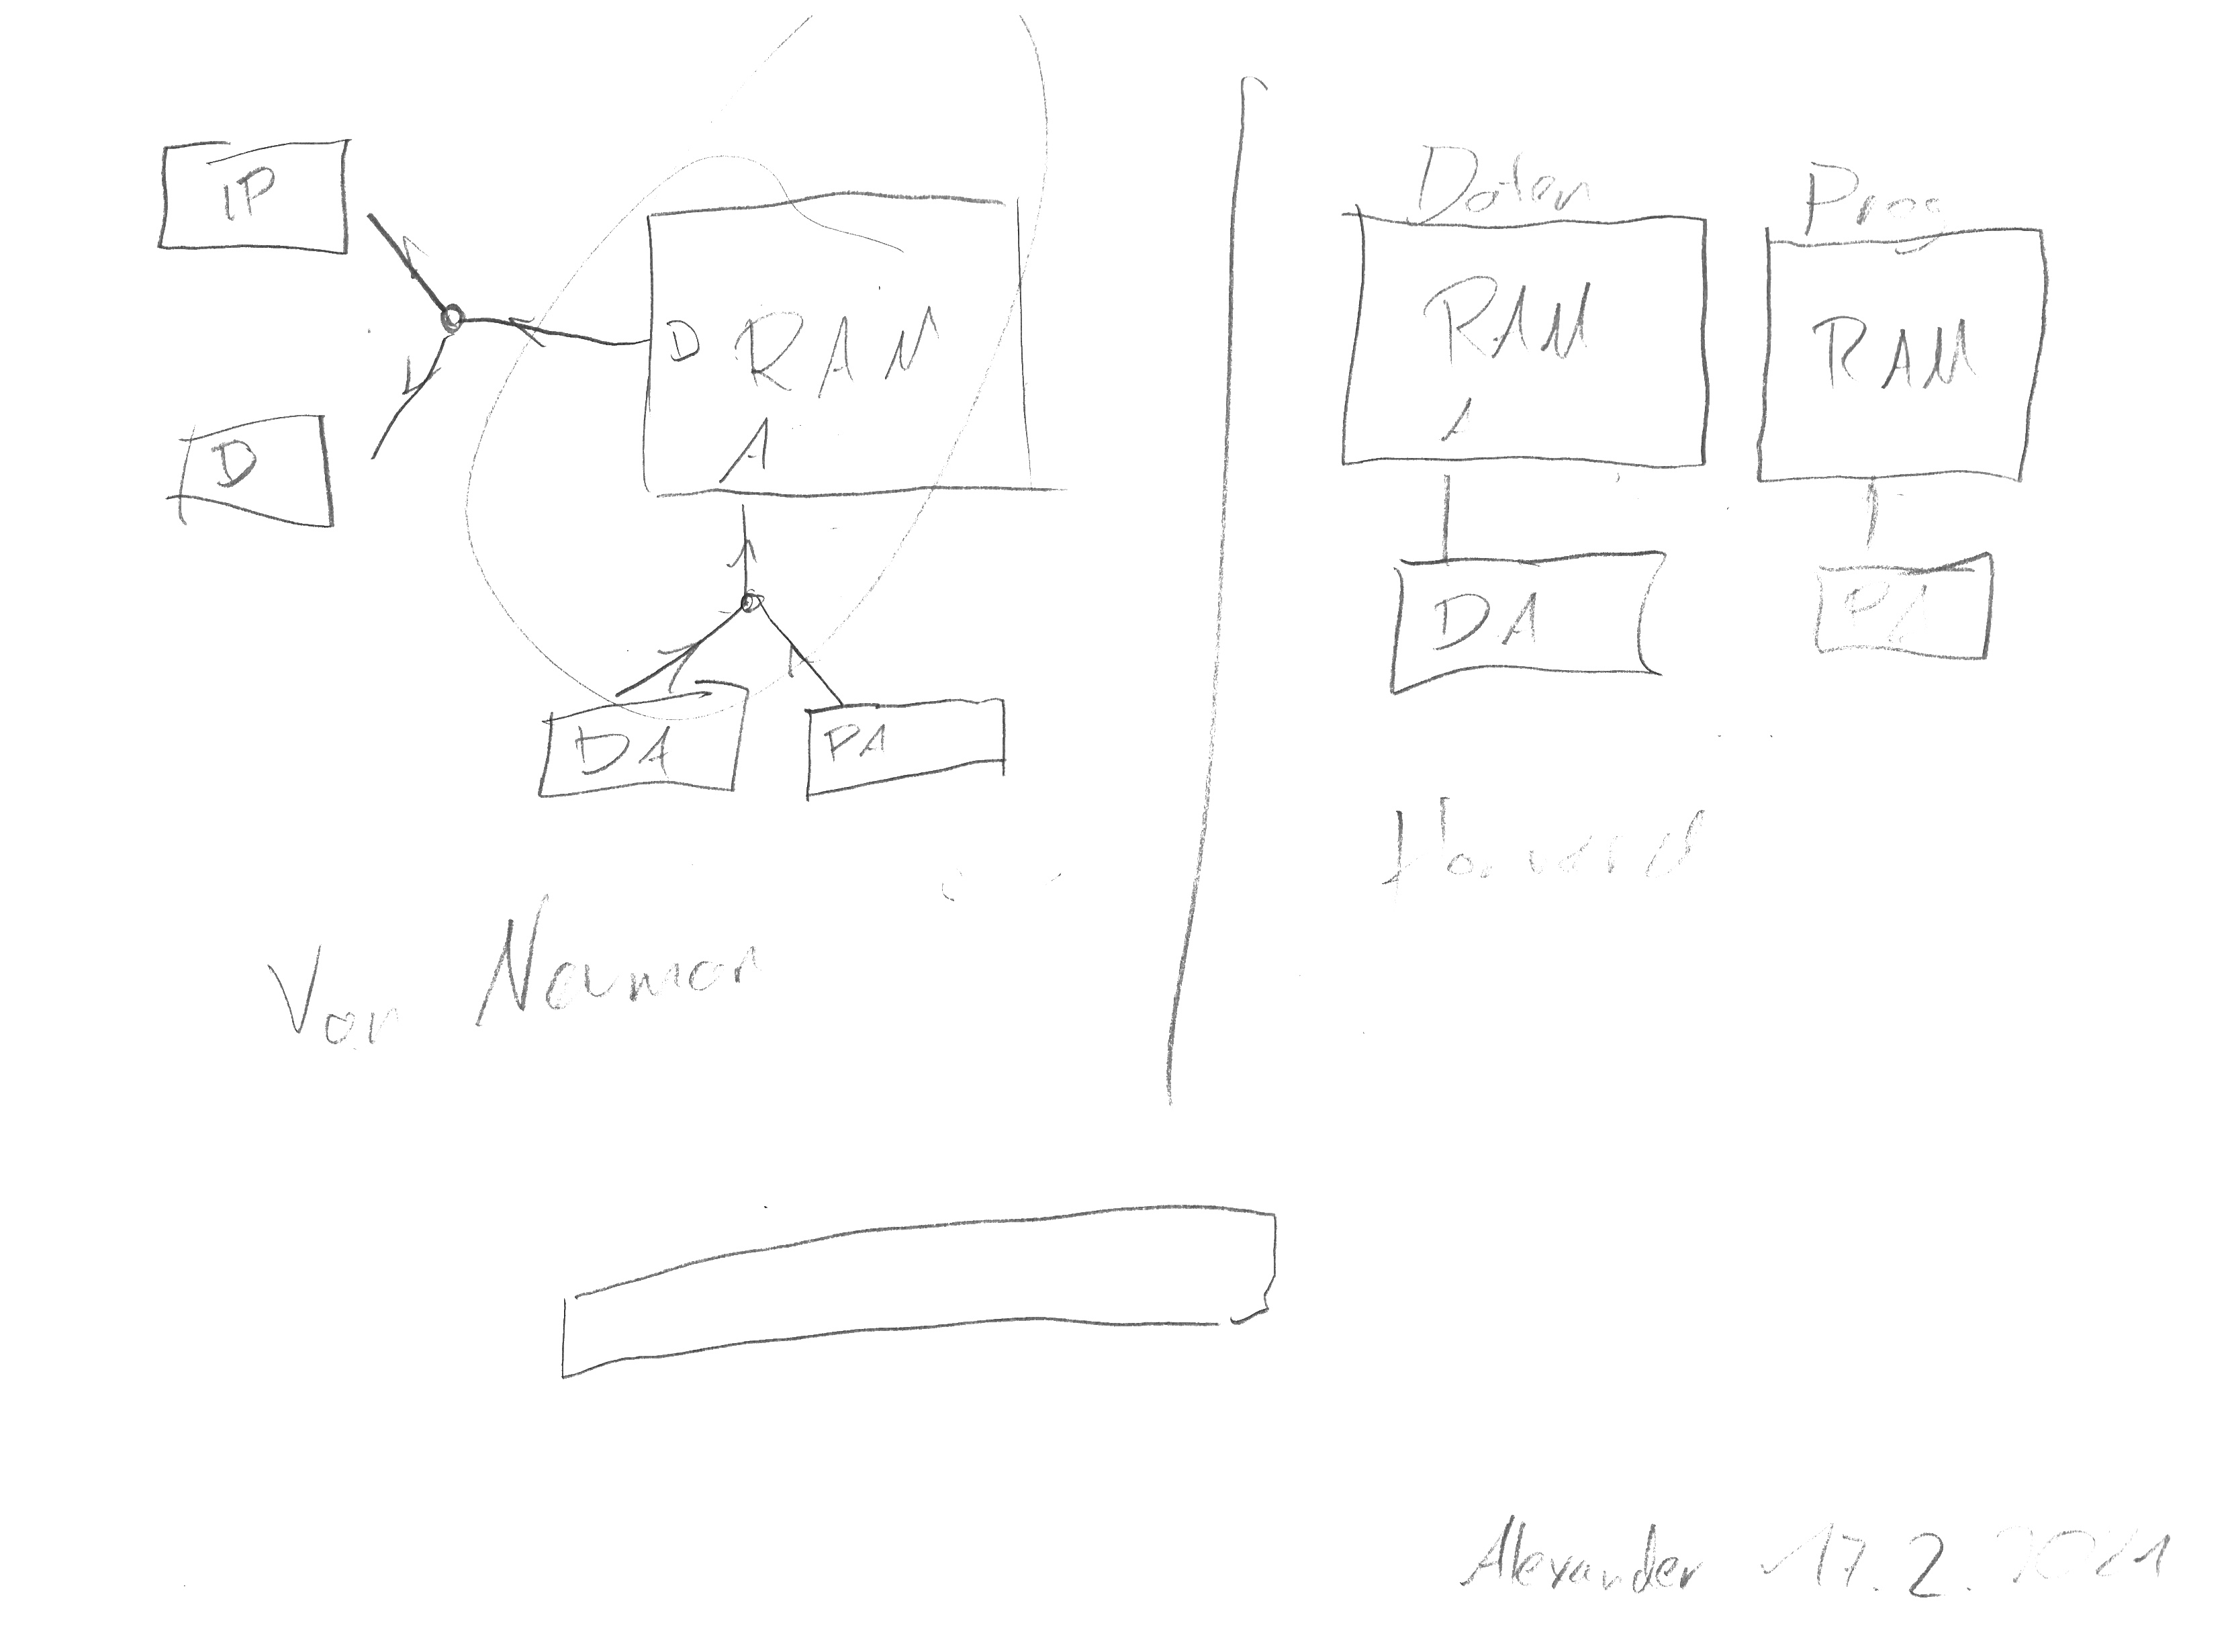 IP
D
D RAM
A
DA
PA
Von Neuman
Daten
RAM
A
DA
Prog
RAM
PA
Harvard
Alexander 17.2.2021